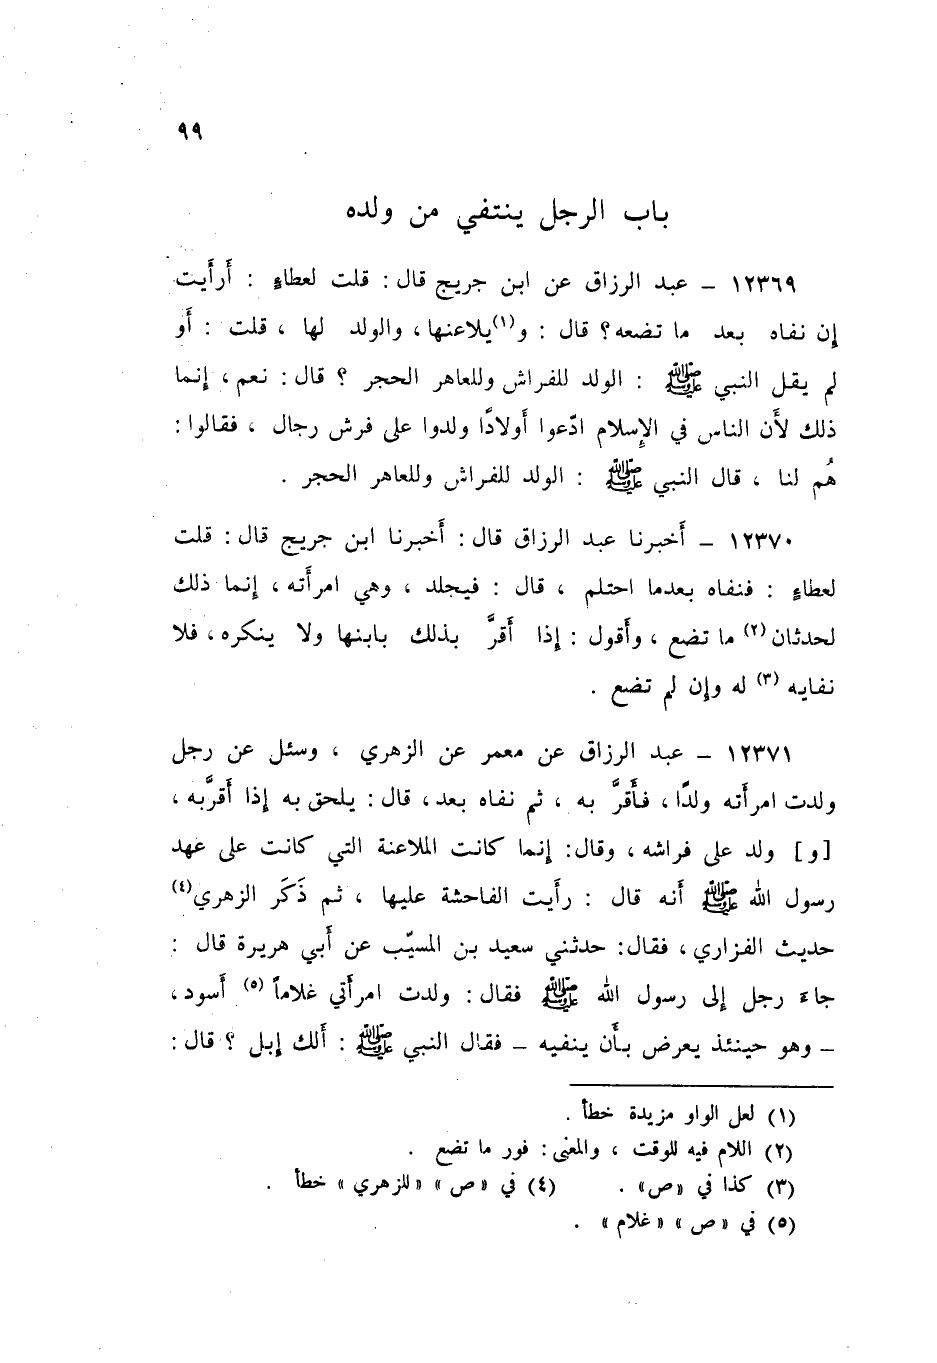 ٩٩
باب الرجل ينتفي من ولده
١٢٣٦٩ – عبد الرزاق عن ابن جريج قال : قلت لعطاءٍ : أَرأَيت
إن نفاه بعد ما تضعه؟ قال : و(١)يلاعنها، والولد لها ، قلت : أَو
لم يقل النبي ﷺ : الولد للفراش وللعاهر الحجر ؟ قال : نعم، إنما
ذلك لأَن الناس في الإسلام ادّعوا أَولادًا ولدوا على فرش رجال ، فقالوا :
هُم لنا ، قال النبي ﷺ : الولد للفراش وللعاهر الحجر .
١٢٣٧٠ – أَخبرنا عبد الرزاق قال : أَخبرنا ابن جريج قال : قلت
لعطاءٍ : فنفاه بعدما احتلم ، قال : فيجلد ، وهي امرأَته ، إنما ذلك
لحدثان (٢) ما تضع ، وأَقول : إذا أَقرَّ بذلك بابنها ولا ينكره، فلا
نفايه (٣) له وإن لم تضع .
١٢٣٧١ – عبد الرزاق عن معمر عن الزهري ، وسئل عن رجل
ولدت امرأَته ولدًا ، فأَقرَّ به ، ثم نفاه بعد، قال : يلحق به إذا أَقرَّبه ،
[و] ولد على فراشه ، وقال: إنما كانت الملاعنة التي كانت على عهد
رسول الله ﷺ أَنه قال : رأَيت الفاحشة عليها ، ثم ذَكَر الزهري(٤)
حديث الفزاري ، فقال: حدثني سعيد بن المسيّب عن أَبي هريرة قال :
جاءَ رجل إلى رسول الله ﷺ فقال : ولدت امرأَتي غلاماً (٥) أَسود،
– وهو حينئذ يعرض بأَن ينفيه – فقال النبي ﷺ : أَلك إبل ؟ قال :
(١) لعل الواو مزيدة خطأ .
(٢) اللام فيه للوقت ، والمعنى : فور ما تضع .
(٣) كذا في «ص» . (٤) في «ص» «للزهري» خطأ .
(٥) في «ص» «غلام» .